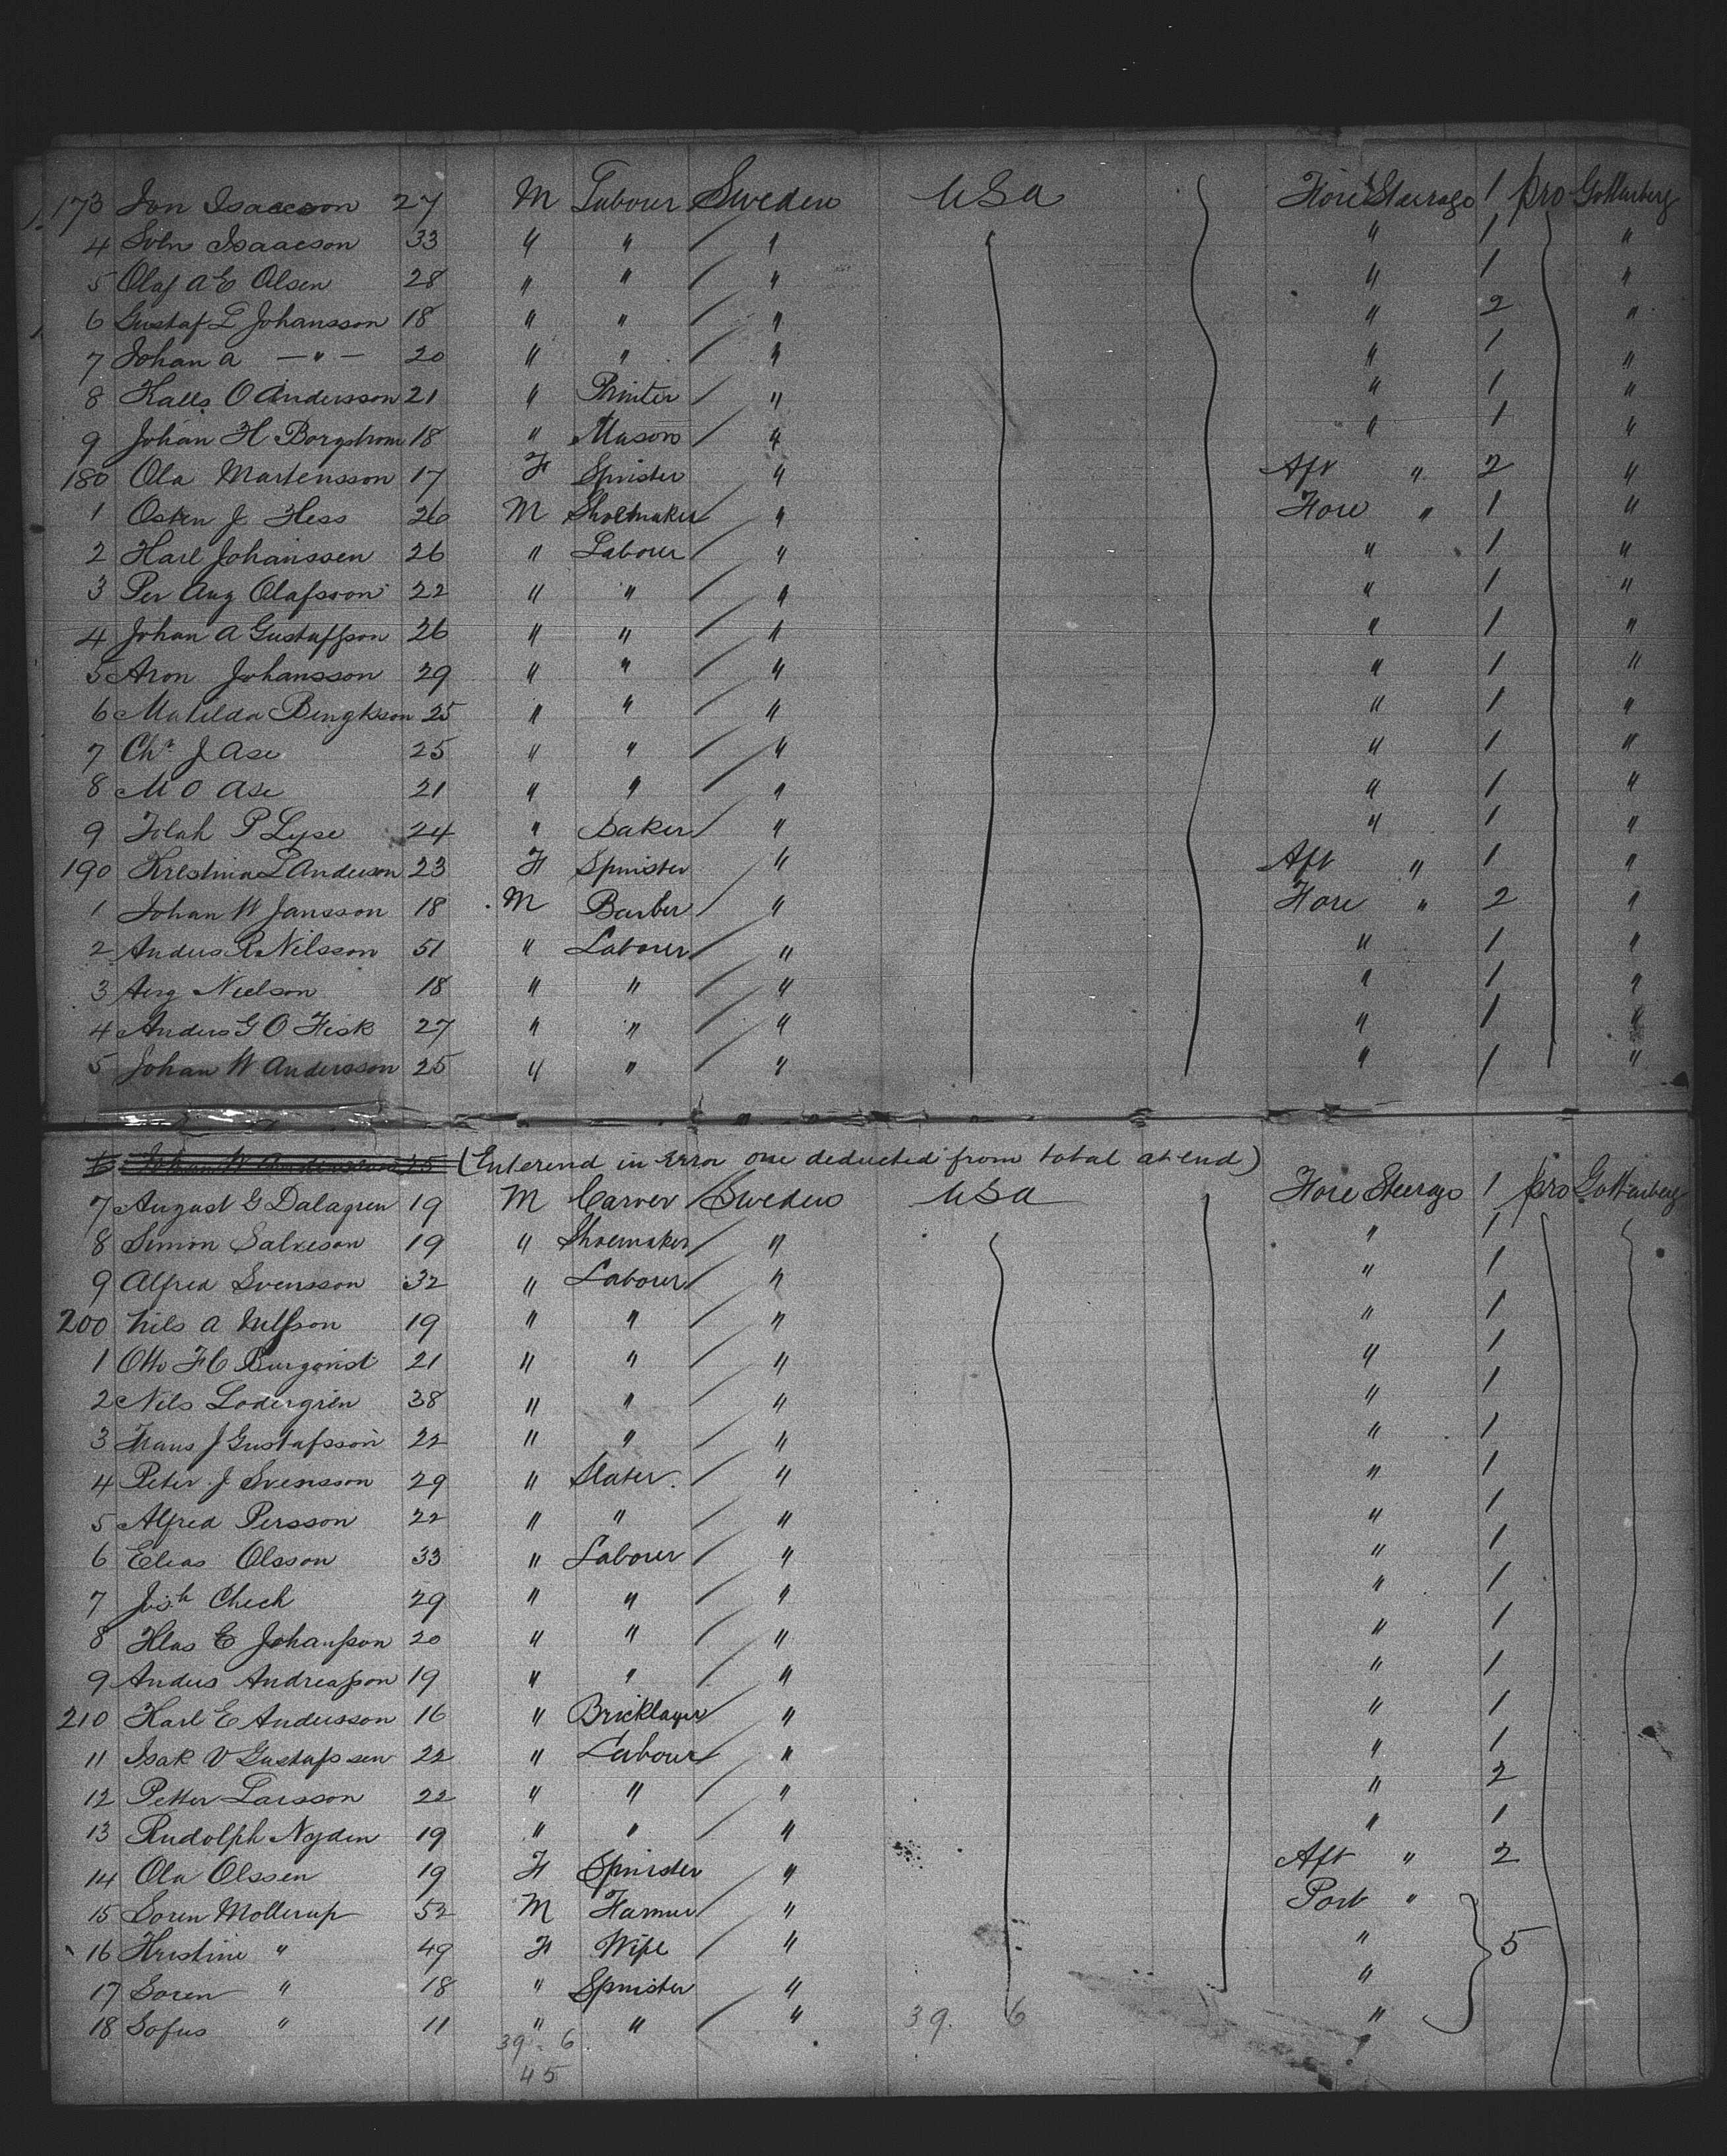 173 Jon Isaacson 27 M Labour Sweden USa Fore Steerage 1 pro Gottenberg
4 Soln Isaacson 33 " " " " 1 "
5 Olaf A E Olsen 28 " " " " 1 "
6 Gustaf L Johansson 18 " " " " 2 "
7 Johan a — " — 20 " " " " 1 "
8 Kalls O Andersson 21 " Printer " " 1 "
9 Johan H Borgstrom 18 " Mason " " 1 "
180 Ola Martensson 17 F Spinster " Aft " 2 "
1 Osten J Hess 26 M Shoemaker " Fore " 1 "
2 Karl Johanssen 26 " Labour " " 1 "
3 Per Aug Olafsson 22 " " " " 1 "
4 Johan A Gustaffson 26 " " " " 1 "
5 Aron Johansson 29 " " " " 1 "
6 Matilda Bengkson 25 " " " " 1 "
7 Chr J Ase 25 " " " " 1 "
8 M O Ase 21 " " " " 1 "
9 P Lyse 24 " Baker " " 1 "
190 Krestina L Anderson 23 F Spinster " Aft " 1 "
1 Johan W Jansson 18 M Barber " Fore " 2 "
2 Anders R Nilsson 51 " Labourer " " 1 "
3 Aug Nielson 18 " " " " 1 "
4 Anders G O Fisk 27 " " " " 1 "
5 Johan W Andersson 25 " " " " 1 "
6 Johan W Andersson 25 (Enterend in Error one deducted from total at end)
7 August G Dalagren 19 M Carver Sweden USa Fore Steerage 1 pro Gottenberg
8 Simon Salveson 19 " Shoemaker " " 1
9 Alfred Svensson 32 " Labourer " " 1
200 Nils A Nilsson 19 " " " " 1
1 Otto F C Burgonist 21 " " " " 1
2 Nils Lodergren 38 " " " " 1
3 Frans J Gustafsson 22 " " " " 1
4 Peter J Svensson 29 " Slater. " " 1
5 Alfred Persson 22 " " " " 1
6 Elias Olsson 33 " Labourer " " 1
7 Josh Check 29 " " " " 1
8 Klas E Johansson 20 " " " " 1
9 Anders Andreasson 19 " " " " 1
210 Karl E Andersson 16 " Bricklayer " " 1
11 Isak V Gustafssen 22 " Labour " " 1
12 Petter Larsson 22 " " " " 2
13 Rudolph Nyden 19 " " " " 1
14 Ola Olssen 19 F Spinster " Aft " 2
15 Soren Mollerup 52 M Farmer " Port "
16 Kristine " 49 F Wife " " 5
17 Soren " 18 " Spinster " "
18 Sofus " 11 " " " 39. 6 "
39. 6
45